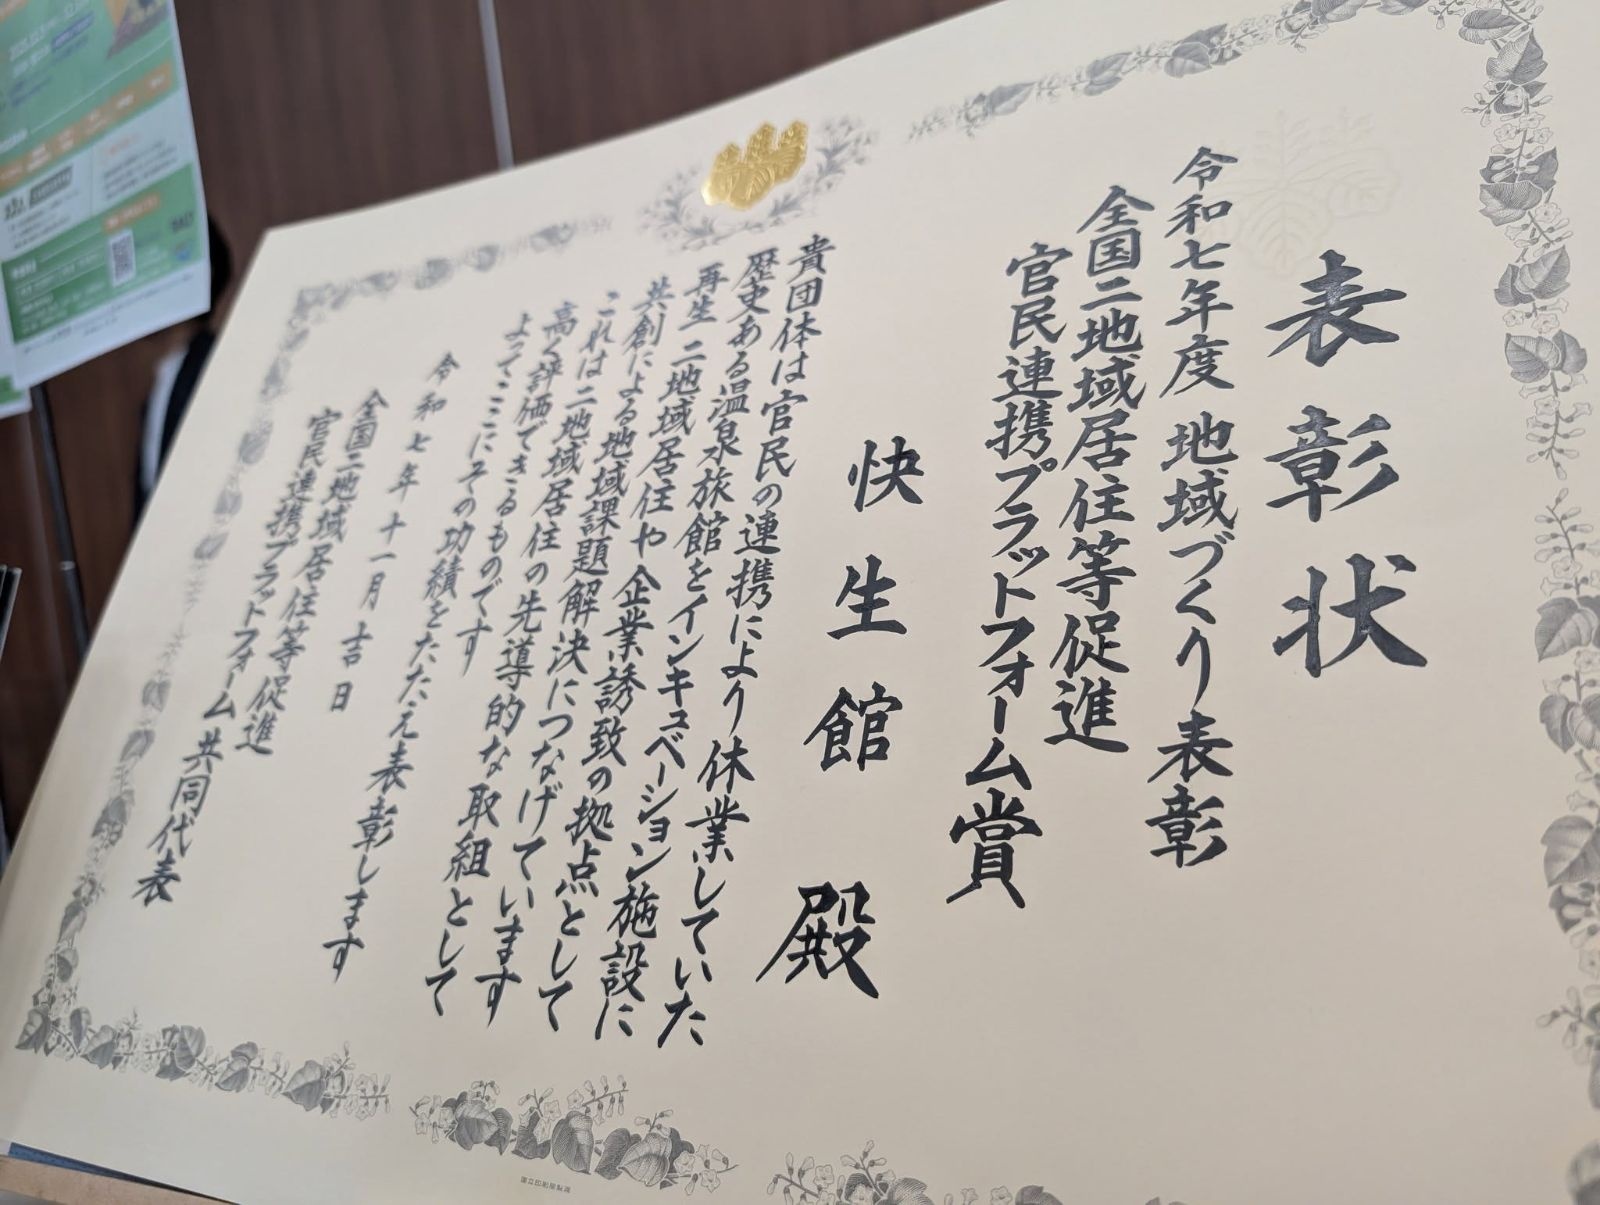 表彰状
令和七年度 地域づくり表彰
全国二地域居住等促進
官民連携プラットフォーム賞
快生館 殿
貴団体は官民の連携により休業していた
歴史ある温泉旅館をインキュベーション施設に
再生 二地域居住や企業誘致の拠点として
共創による地域課題解決につなげています
これは二地域居住の先導的な取組として
高く評価できるものです
よってここにその功績をたたえ表彰します
令和七年十一月吉日
全国二地域居住等促進
官民連携プラットフォーム 共同代表
国立印刷局製造